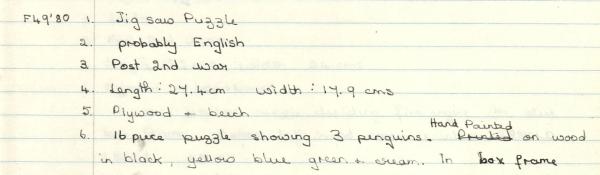 F49'80 1. Jig saw Puzzle
2. probably English
3 Post 2nd war
4. Length: 27.4cm width: 17.9 cms
5. Plywood + beech
Hand Painted
6. 16 piece puzzle showing 3 penguins. Printed on wood
in black, yellow blue green + cream. In box frame